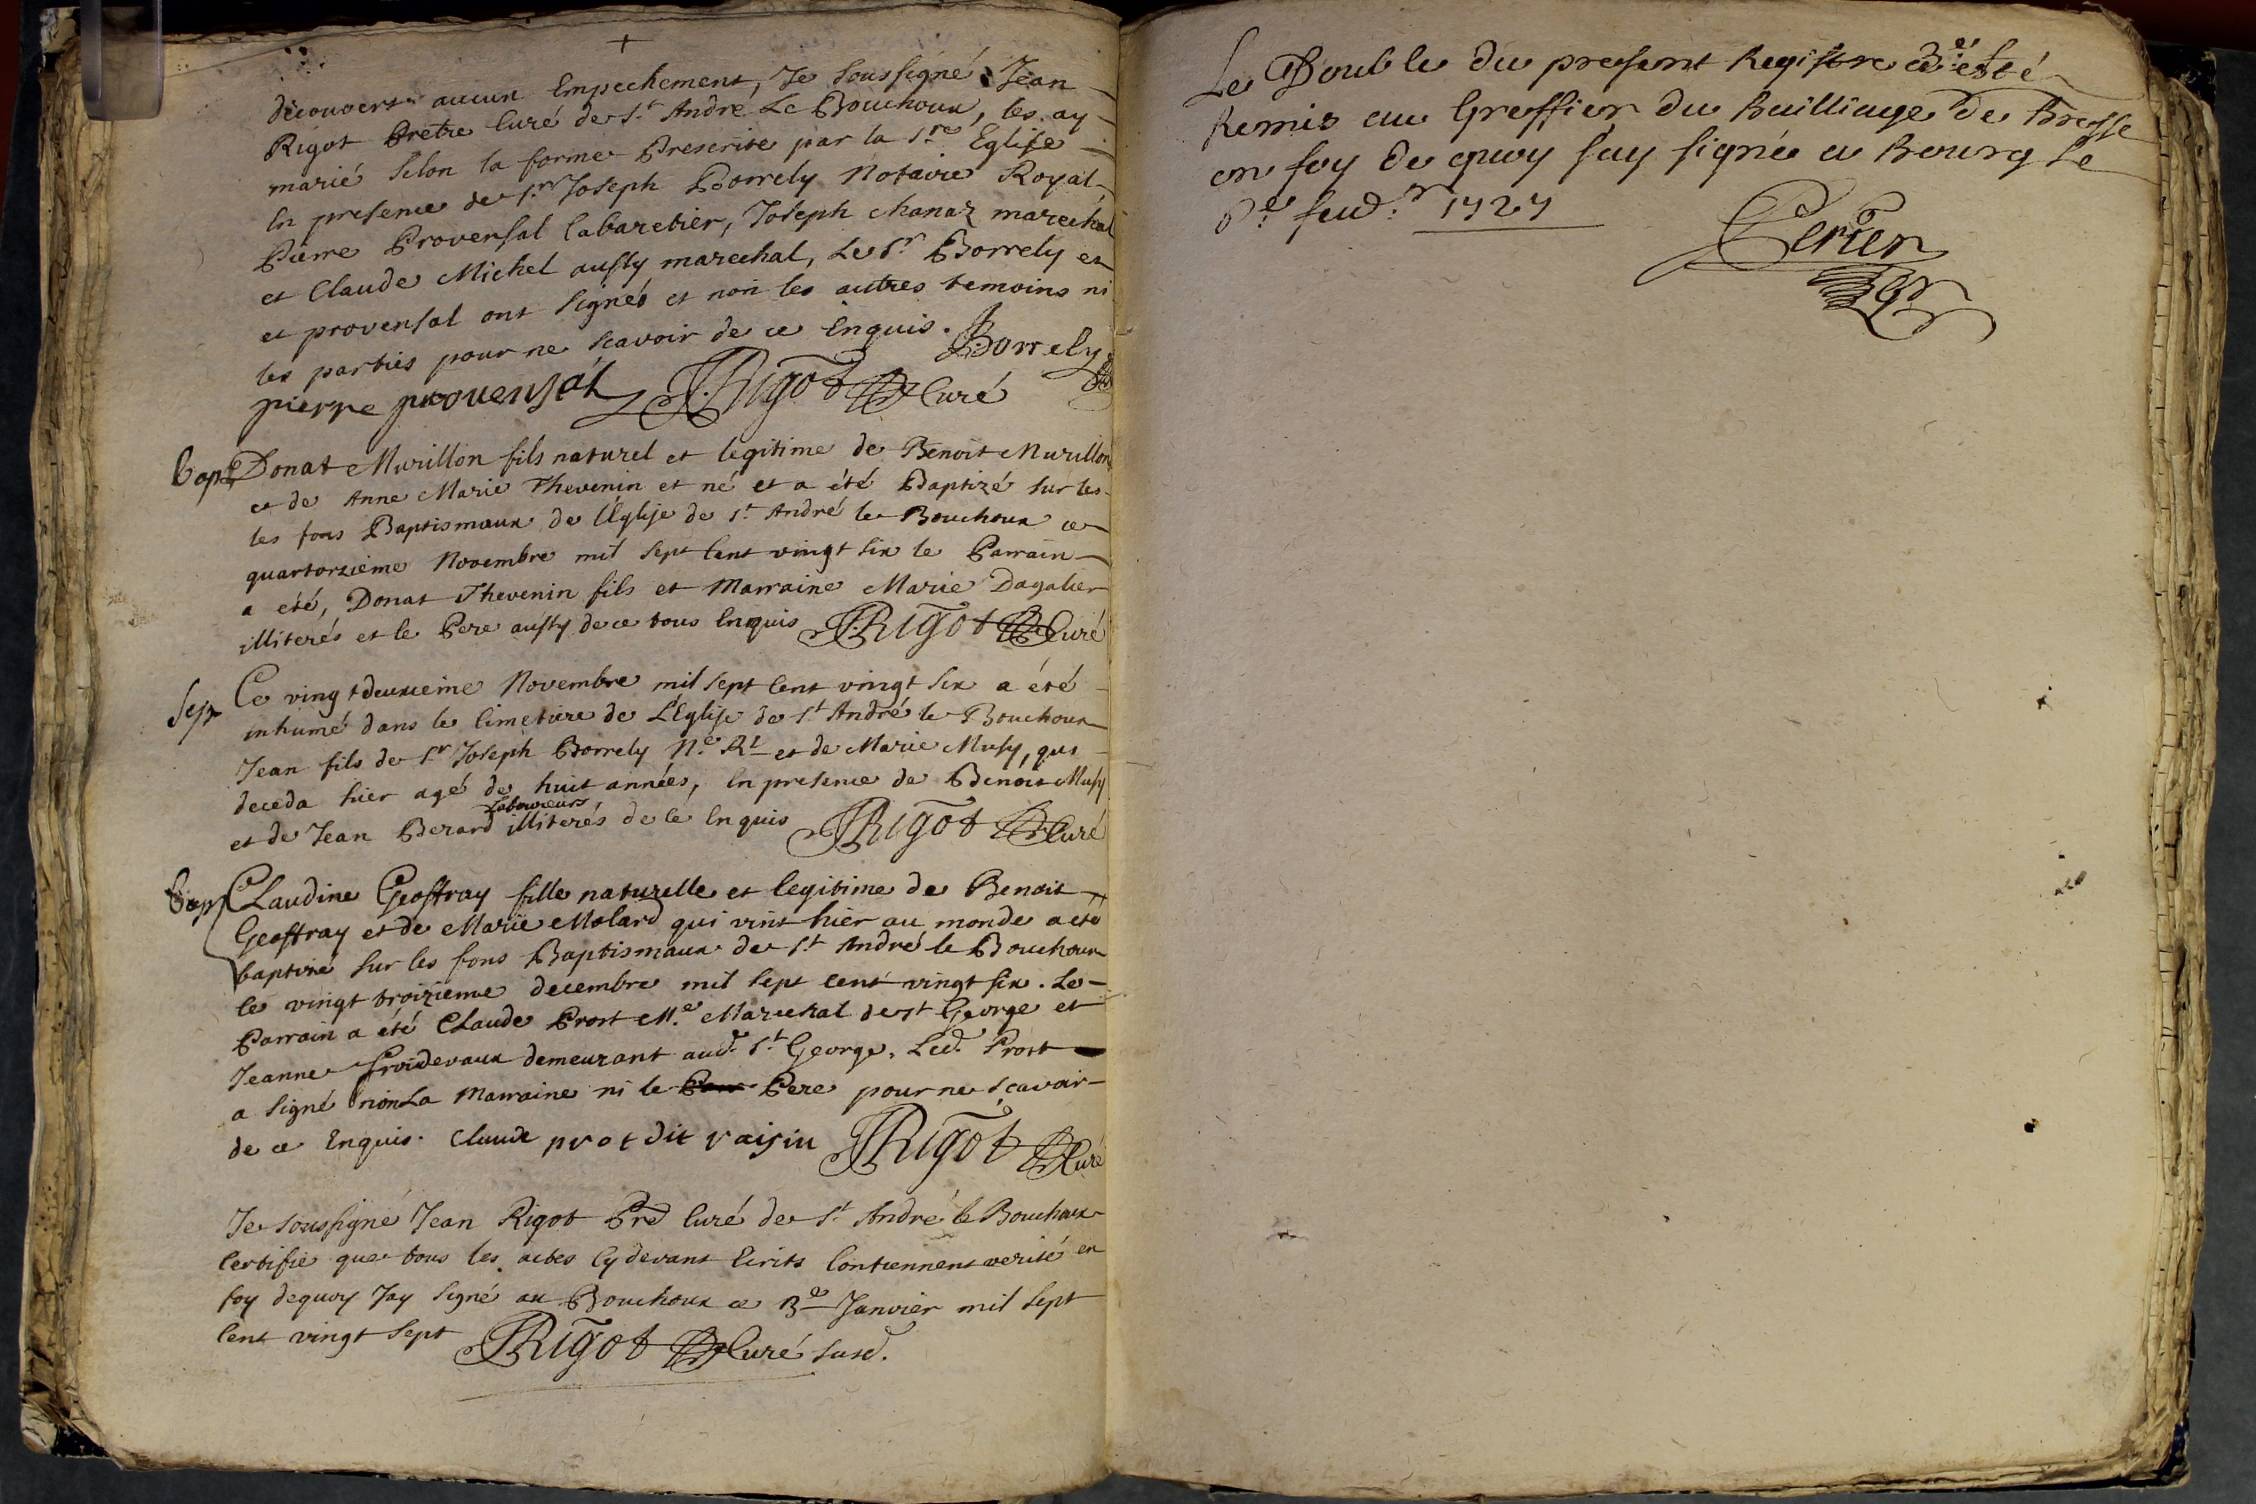 découvert aucun Empechement, Je soussigné Jean
Rigot Pretre Curé de St André Le Bouchoux, les ay
marié selon la forme Prescrite par la Ste Eglise
En presence de Sr Joseph Borrely Notaire Royal
Pierre Provensal Cabaretier, Joseph Chanaz marechal
et Claude Michel aussy marechal, Le Sr Borrely et
et provensal ont signés et non les autres temoins ni
les parties pour ne scavoir de ce Enquis. Borrely
pierre prouensal JRigot Curé
Bapt Donat Murillon fils naturel et legitime de Benoit Murillon
et de Anne Marie Thevenin et né et a été Baptizé sur les
les fons Baptismaux de l'Eglise de St André le Bouchoux ce
quartorzieme Novembre mil sept Cent vingt six le Parrain
a été, Donat Thevenin fils et Marraine Marie Dagalier
illiterés et le Pere aussy de ce tous Enquis JRigot Curé
Sep Ce vingtdeuxieme Novembre mil sept Cent vingt six a été
inhumé dans le Cimetiere de L'Eglise de St André le Bouchoux
Jean fils de Sr Joseph Borrely N.e Rl et de Marie Musy, qui
deceda hier agé de huit années, En presence de Benoit Musy
et de Jean Berard Laboureurs illiterés de cé Enquis JRigot Curé
Bapt Claudine Geoffray fille naturelle et legitime de Benoit
Geoffray et de Marie Molard qui vint hier au monde a été
baptizé sur les fons Baptismaux de St André le Bouchoux
le vingt troizieme decembre mil sept cent vingt six. Le
Parrain a été Claude Prost M.e Marechal de St George et
Jeanne Froidevaux demeurant aud. St George. Led. Prost
a signé non La Marraine ni le Pere pour ne sçavoir
de ce Enquis. Claude prot dit raisin JRigot Curé
Je soussigné Jean Rigot Pre Curé de St André le Bouchoux
Certifie que tous les actes Cy devant Ecrits Contiennent verité en
foy dequoy Jay signé au Bouchoux ce 3e Janvier mil sept
Cent vingt sept JRigot Curé susd.
Le Double du present Registre a esté
Remis au Greffier du Bailliage de Bresse
en foy de quoy jay signé a Bourg Le
6e feud.r 1727
Perier